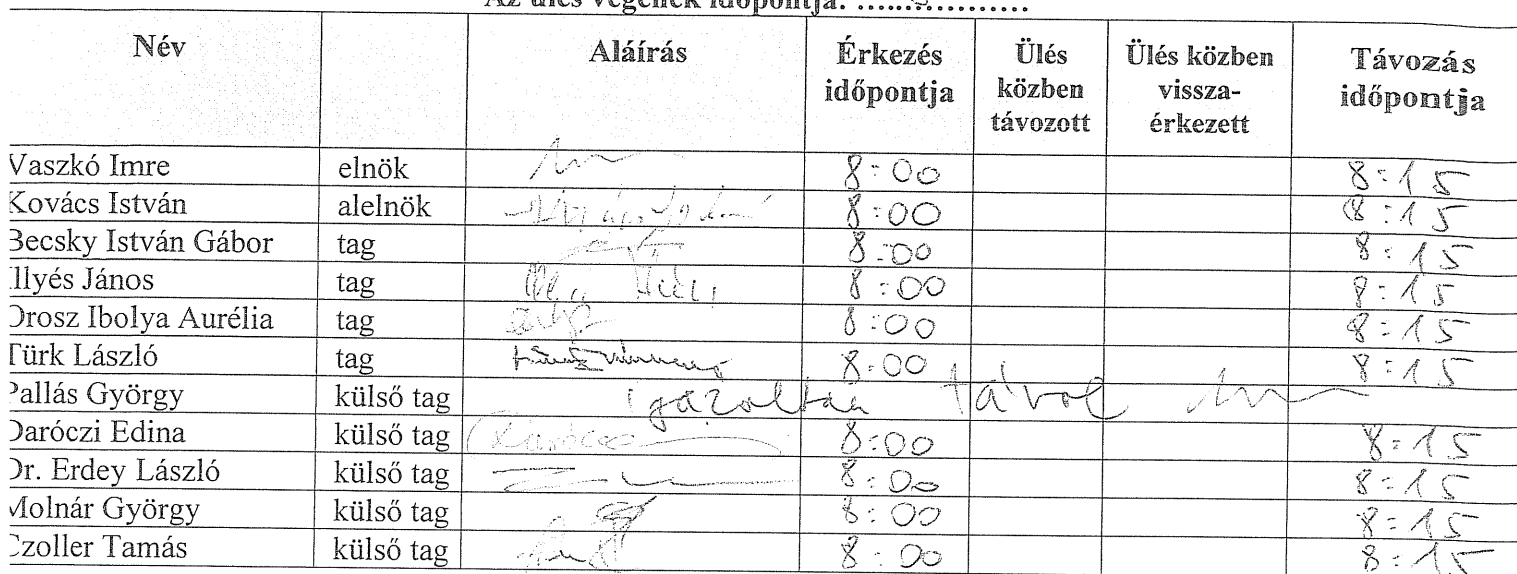 Az ülés végének időpontja: ..................
Név Aláírás Érkezés időpontja Ülés közben távozott Ülés közben vissza-érkezett Távozás időpontja
Vaszkó Imre elnök 8:00 8:15
Kovács István alelnök 8:00 8:15
Becsky István Gábor tag 8:00 8:15
Illyés János tag 8:00 8:15
Orosz Ibolya Aurélia tag 8:00 8:15
Türk László tag 8:00 8:15
Pallás György külső tag igazoltan távol
Daróczi Edina külső tag 8:00 8:15
Dr. Erdey László külső tag 8:00 8:15
Molnár György külső tag 8:00 8:15
Czoller Tamás külső tag 8:00 8:15